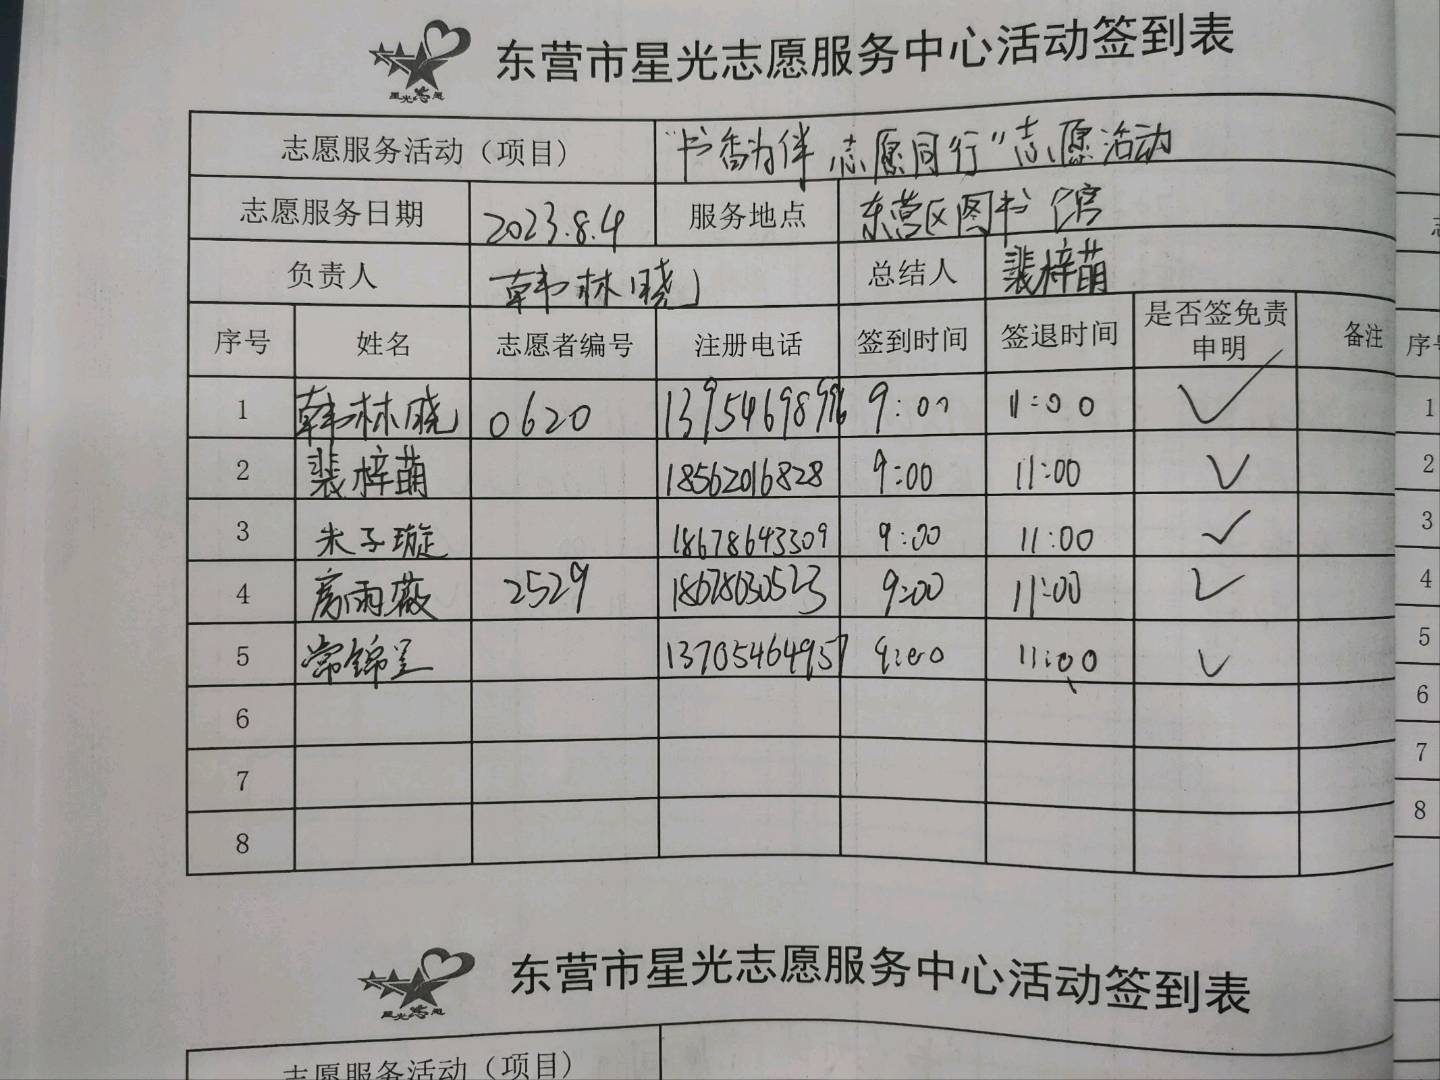 星光志愿
东营市星光志愿服务中心活动签到表
志愿服务活动（项目） "书香为伴 志愿同行"志愿活动
志愿服务日期 2023.8.4 服务地点 东营区图书馆
负责人 韩林晓 总结人 裴梓萌
序号 姓名 志愿者编号 注册电话 签到时间 签退时间 是否签免责申明 备注
1 韩林晓 0620 9:00 11:00 ✓
2 裴梓萌 18562016828 9:00 11:00 ✓
3 朱子璇 18678643309 9:00 11:00 ✓
4 房雨薇 2529 18678630523 9:00 11:00 ✓
5 常锦呈 13705464957 9:00 11:00 ✓
6
7
8
星光志愿
东营市星光志愿服务中心活动签到表
志愿服务活动（项目）
序号
1
2
3
4
5
6
7
8